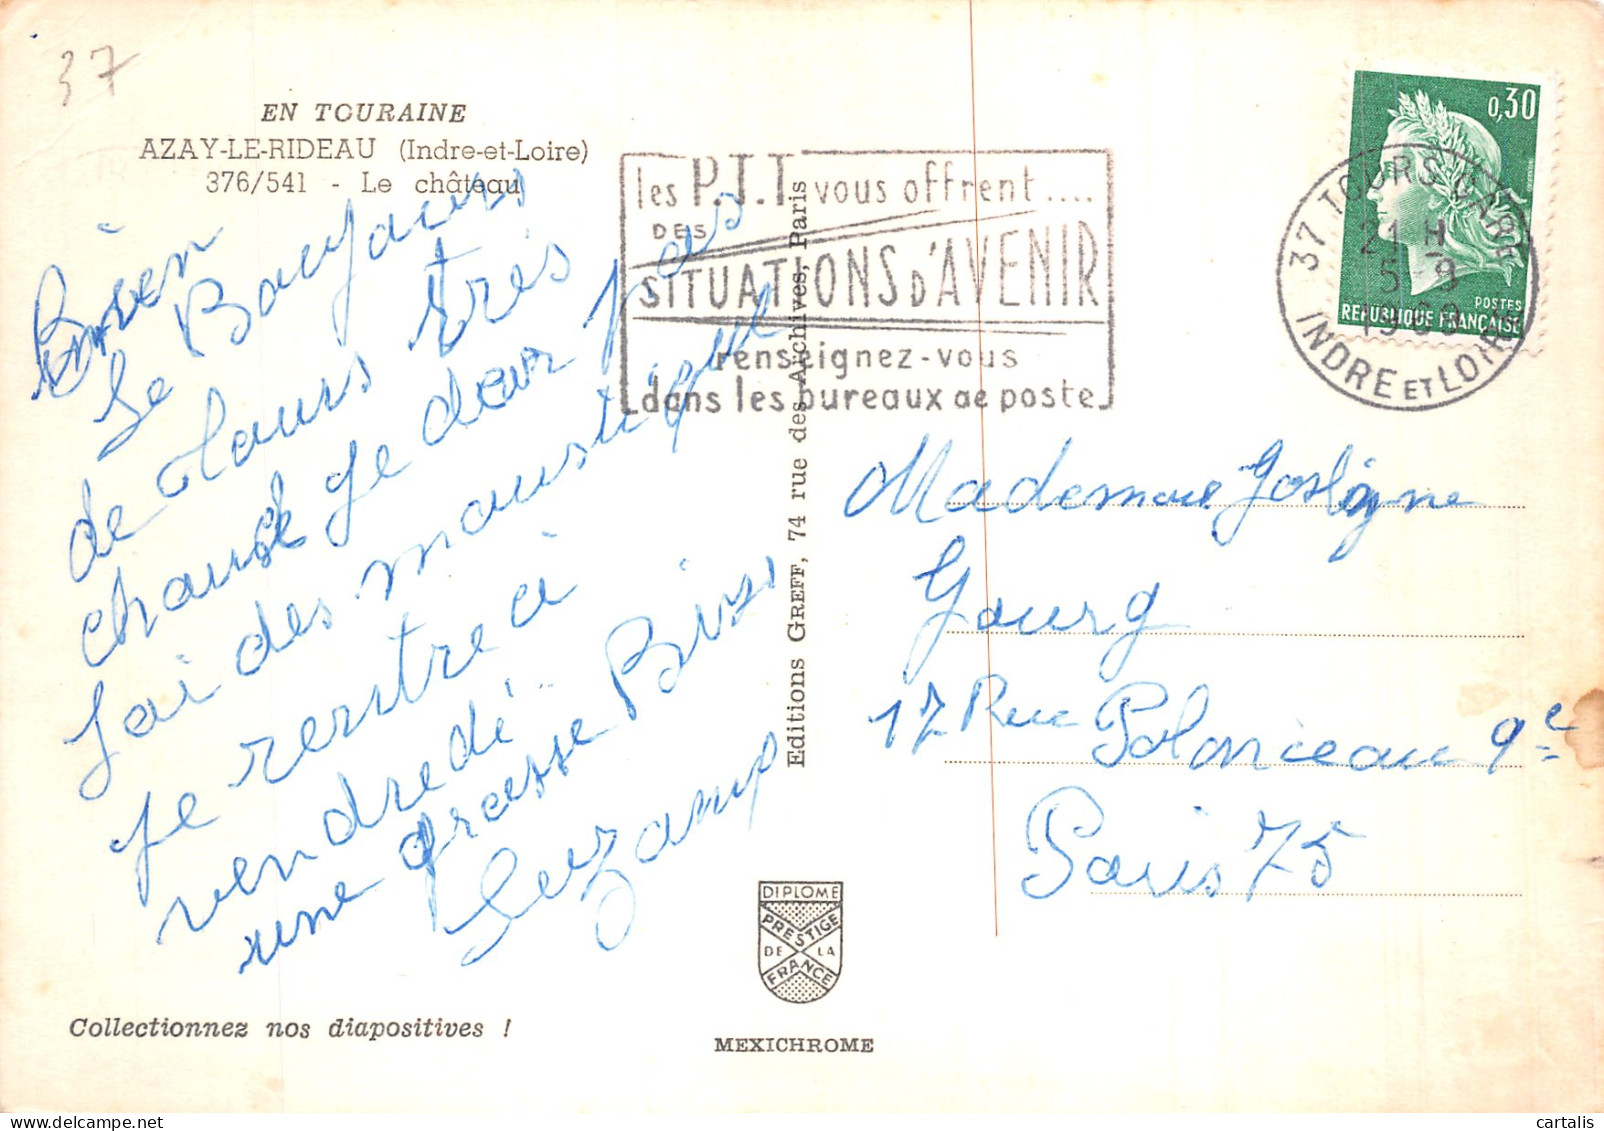 37
EN TOURAINE
AZAY-LE-RIDEAU (Indre-et-Loire)
376/541 - Le château
les P.T.T vous offrent ....
DES
SITUATIONS D'AVENIR
renseignez-vous
dans les bureaux de poste
0,30
POSTES
REPUBLIQUE FRANÇAISE
37 TOURS GARE
21 H
5-9
INDRE ET LOIRE
Bien
le Boujours
de Tours très
chause je decor pas
Jai des moustique
je rentre ci
vendredi
une grosse Bise
Suzanp
Editions GREFF, 74 rue des Archives, Paris
Mademoie Josligne
Gourg
17 Rue Polonceau 9e
Paris 75
DIPLOME
PRESTIGE
DE LA
FRANCE
Collectionnez nos diapositives !
MEXICHROME
cartalis
www.delcampe.net